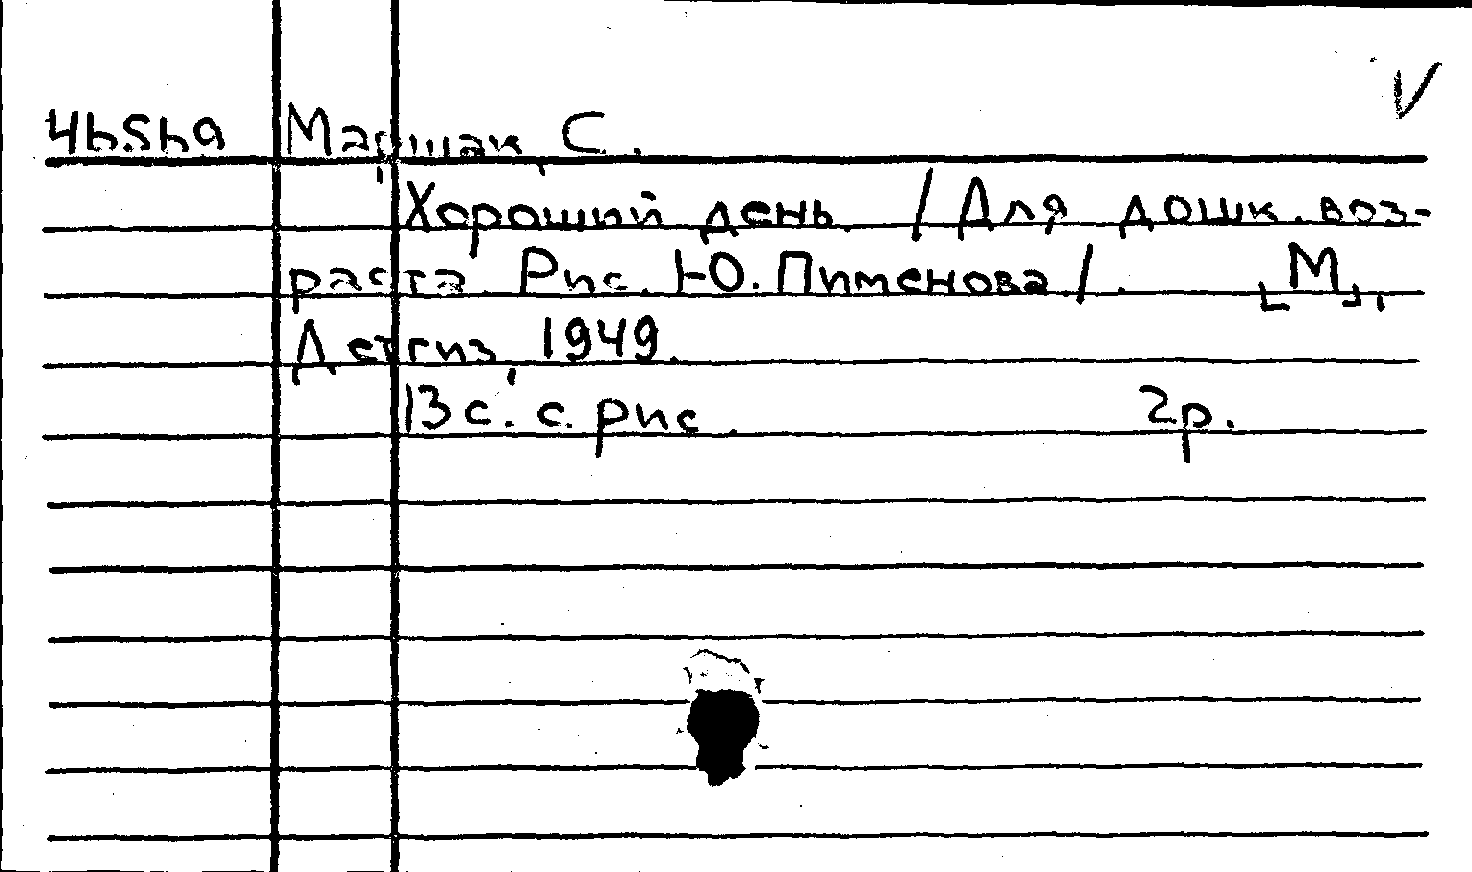 Маршак, С.
Хороший день. /Для дошк. воз-
раста. Рис. Ю. Пименова/. [М.],
Детгиз, 1949.
13 с. с рис. 2р.